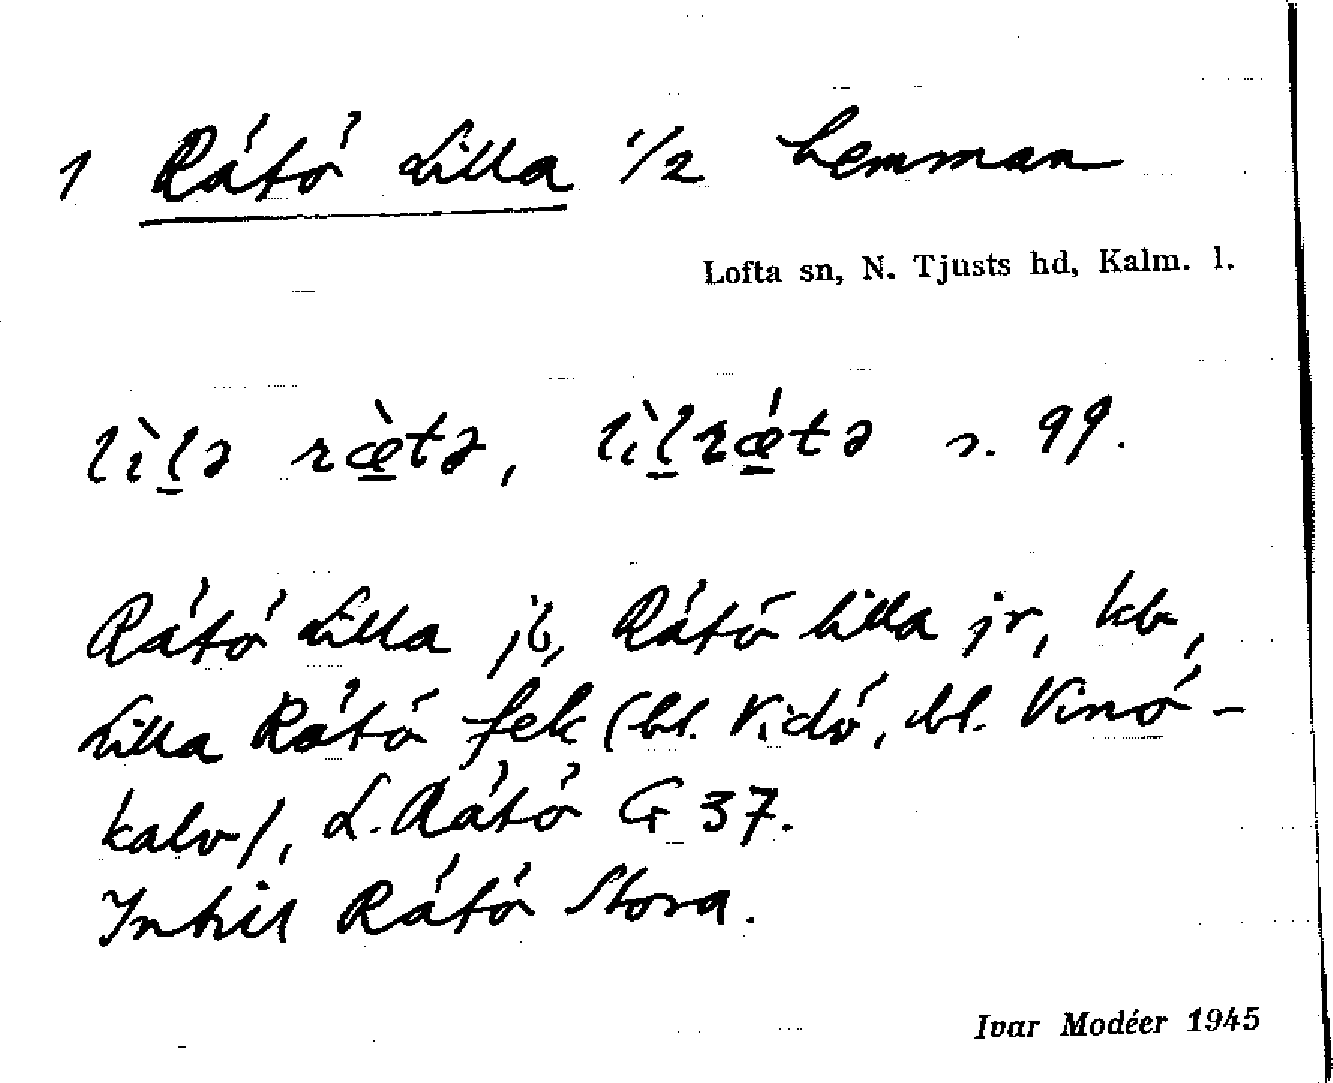 1 Rátó Lilla 1/2 hemman
Lofta sn, N. Tjusts hd, Kalm. l.
lìlə ræ̀tə, lìlrǽtə s. 99.
Rátó Lilla jb, Rátó lilla jr, kb,
Lilla Rátó fek (bl. Vidó, bl. Vinó-
kalv), L. Rátó G 37.
Intill Rátó Stora.
Ivar Modéer 1945